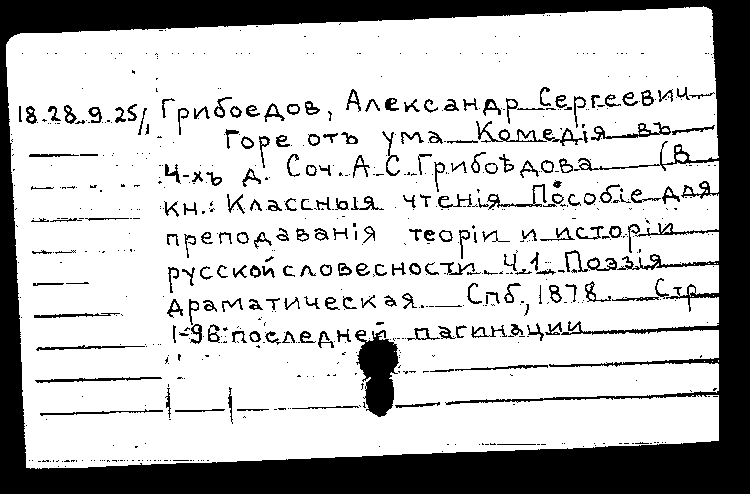 18.28.9.25/, Грибоедов, Александр Сергеевич
Горе отъ ума Комедія въ
4-хъ д. Соч. А.С. Грибоѣдова (В
кн.: Классныя чтенія Пособіе для
преподаванія теоріи и исторіи
русской словесности. Ч.1. Поэзія
драматическая. Спб., 1878. Стр
1-96 последней пагинации